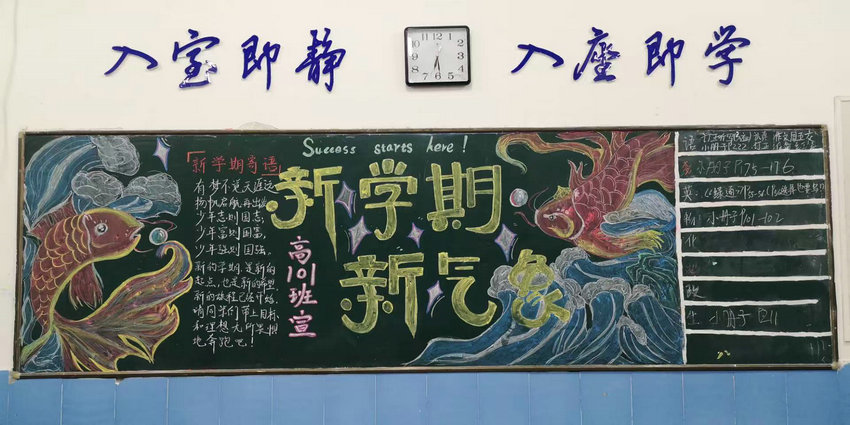 入室即静
入座即学
Success starts here!
新学期
新气象
高101班宣
新学期寄语
有梦不觉天涯远
扬帆启航再出发
少年志则国志，
少年富则国富，
少年强则国强。
新的学期，是新的
起点，也是新的希望
新的旅程已经开始，
请同学们带上目标
和理想 无所畏惧
地奔跑吧！
语
小册子P222
小册子P175-176
英：
物：小册子P101-102
政
生 小册子